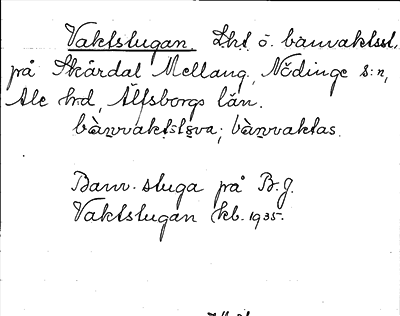 Vaktstugan. Lht ö. banvaktsst.
på Skårdal Mellang, Nödinge s:n,
Ale hd, Älfsborgs län.
bànvaktstəva; bànvaktas.
Banv. stuga på B.J.
Vaktstugan kb. 1935.